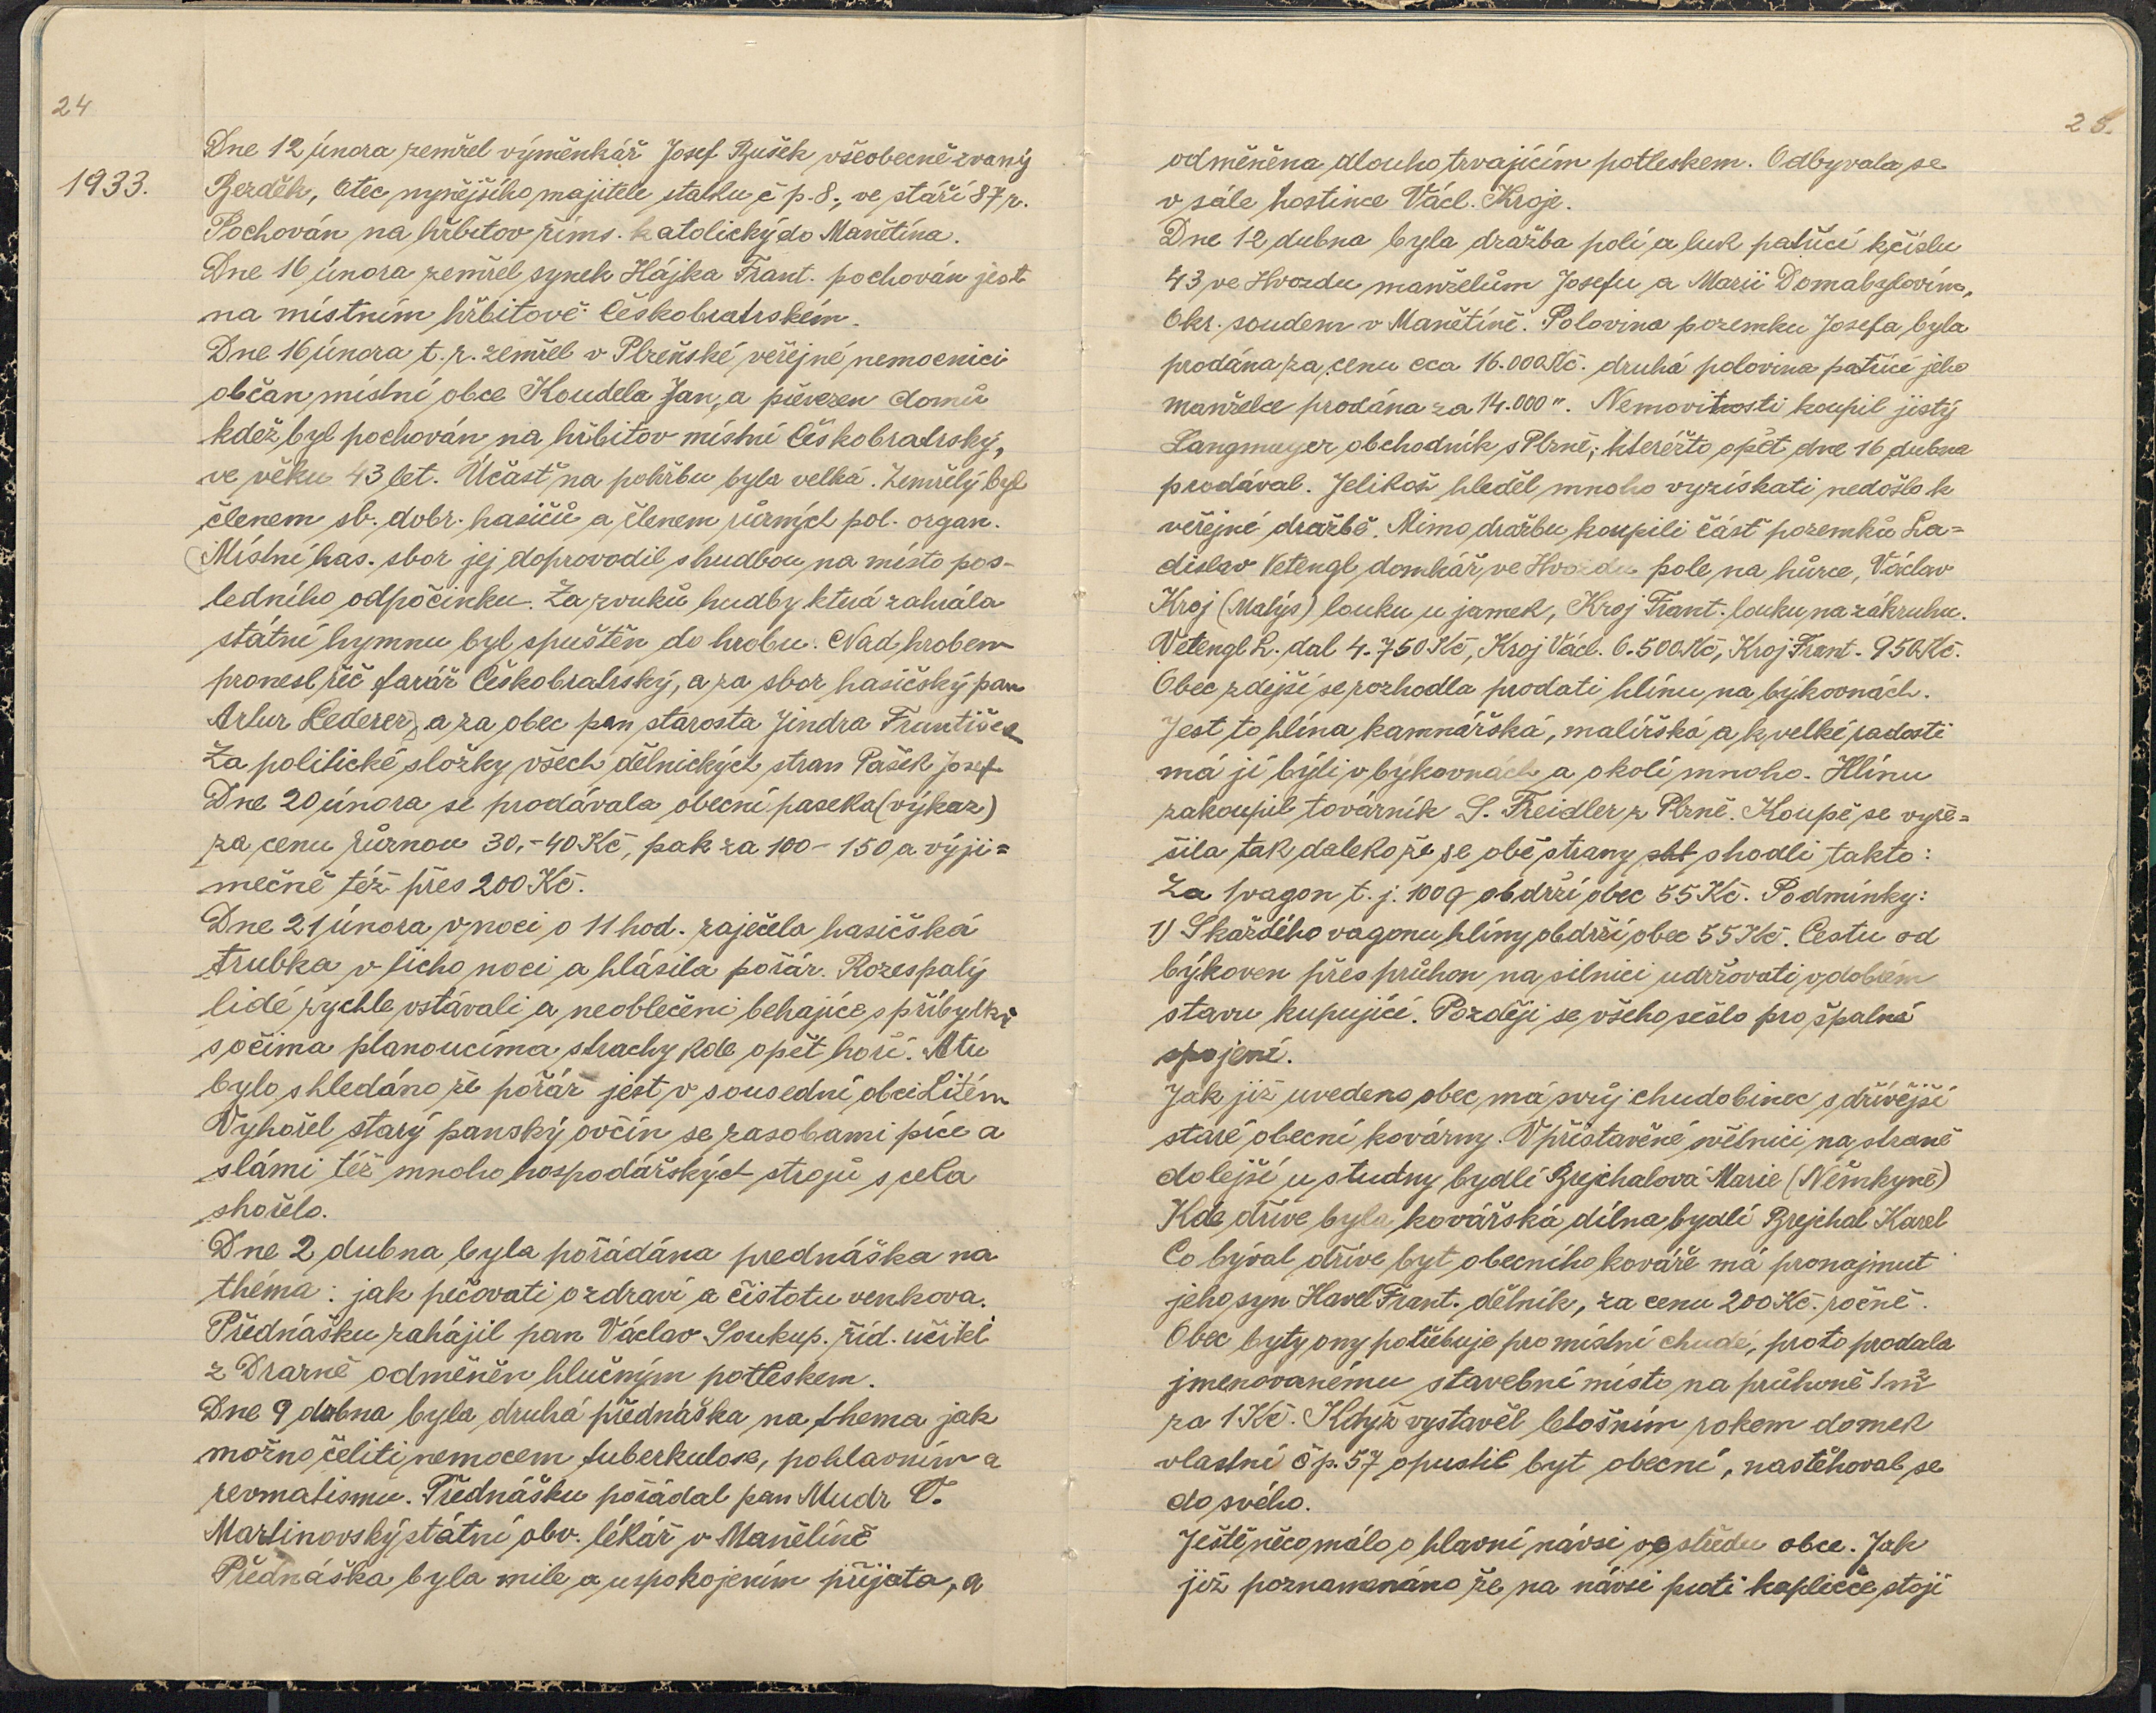 24
1933.
Dne 12 února zemřel výměnkář Josef Bušek všeobecně zvaný
Berděk, Otec nynějšího majitele statku č p. 8., ve stáří 87 r.
Pochován na hřbitov říms. katolický do Manětína.
Dne 16 února zemřel synek Hájka Frant. pochován jest
na místním hřbitově Českobratrském.
Dne 16 února t. r. zemřel v Plzeňské veřejné nemocnici
občan místní obce Koudela Jan, a převezen domů
kdež byl pochován na hřbitov místní Českobratrský,
ve věku 43 let. Účasť na pohřbu byla velká. Zemřelý byl
členem sb. dobr. hasičů a členem různých pol. organ.
(Místní has. sbor jej doprovodil s hudbou na místo pos-
ledního odpočinku. Za zvuků hudby ktrá zahrála
státní hymnu byl spuštěn do hrobu. Nad hrobem
pronesl řěč farář Českobratrský, a za sbor hasičský pan
Artur Lederer, a za obec pan starosta Jindra František
Za politické složky všech dělnických stran Pašek Josef
Dne 20 února se prodávala obecní paseka (výkaz)
za cenu různou 30,-40 Kč, pak za 100-150 a výji=
mečně též přes 200 Kč.
Dne 21 února v noci o 11 hod. zaječela hasičská
trubka v ticho noci a hlásila požár. Rozespalý
lidé rychle vstávali a neoblečeni behajíce s příbytků
s očima planoucíma strachy kde opět hoří. A tu
bylo shledáno že požár jest v sousední obci Litém
Vyhořel starý panský ovčín se zasobami píce a
slámi též mnoho hospodářských strojů s cela
shořelo.
Dne 2 dubna byla pořádána prednáška na
théma: jak pečovati o zdraví a čistotu venkova.
Přednášku zahájil pan Václav Soukup. říd. učitel
z Dražně odměněn hlučným potleskem.
Dne 9 dubna byla druhá přednáška na thema jak
možno čeliti nemocem tuberkulose, pohlavním a
revmatismu. Přednášku pořádal pan Mudr V.
Martinovský státní obv. lékář v Manětíně
Přednáška byla mile a uspokojením přijata, a
25.
odměněna dlouho trvajícím potleskem. Odbyvala se
v sále hostince Václ. Kroje.
Dne 12 dubna byla dražba polí a luk patřící k číslu
43 ve Hvozdu manželům Josefu a Marii Domabylovím,
Okr. soudem v Manětíně. Polovina pozemku Josefa byla
prodána za cenu cca 16.000 Kč. druhá polovina patřící jeho
manželce prodána za 14.000 ". Nemovitosti koupil jistý
Langmayer obchodník s Plzně, kteréžto opět dne 16 dubna
prodával. Jelikož hleděl mnoho vyzískati nedošlo k
veřejné dražbě. Mimo dražbu koupili část pozemků La=
dislav Vetengl domkář ve Hvozdu pole na hůrce, Václav
Kroj (Malýs) louku u jamek, Kroj Frant. louku na zákruhu.
Vetengl L. dal 4.750 Kč, Kroj Václ. 6.500 Kč, Kroj Frant. 950 Kč.
Obec zdejší se rozhodla prodati hlínu na býkovnách.
Jest to hlína kamnářská, malířská a k velké radosti
má jí býti v býkovnách a okolí mnoho. Hlínu
zakoupil továrník S. Freidler z Plzně. Koupě se vyře=
šila tak daleko že se obě strany shodli takto:
Za 1 vagon t. j. 100 q obdrží obec 55 Kč. Podmínky:
1) S každého vagonu hlíny obdrží obec 55 Kč. Cestu od
býkoven přes průhon na silnici udržovati v dobrém
stavu kupující. Později se všeho sešlo pro špalné
spojení.
Jak již uvedeno obec má svůj chudobinec s dřívější
staré obecní kovárny. V přístavěné světnici na straně
dolejší u studny bydlí Brejchalová Marie (Němkyně)
Kde dříve byla kovářská dílna bydlí Brejchal Karel
Co býval dříve byt obecního kováře má pronajmut
jeho syn Havel Frant. dělník, za cenu 200 Kč. ročně.
Obec byty ony potřebuje pro místní chudé, proto prodala
jmenovanému stavební místo na průhoně 1 m²
za 1 Kč. Když vystavěl letošním rokem domek
vlastní č p. 57 opustil byt obecní, nastěhoval se
do svého.
Ještě něco málo o hlavní návsi ve středu obce. Jak
již poznamenáno že na návsi proti kapličce stojí